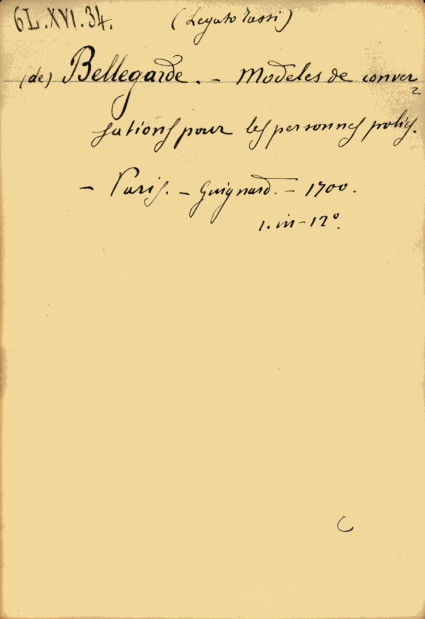 6L.XVI.34. (Legato Tassi)
(de) Bellegarde. - Modeles de conver
sations pour les personnes polies.
- Paris. - Guignard. - 1700.
1. in-12°.
C